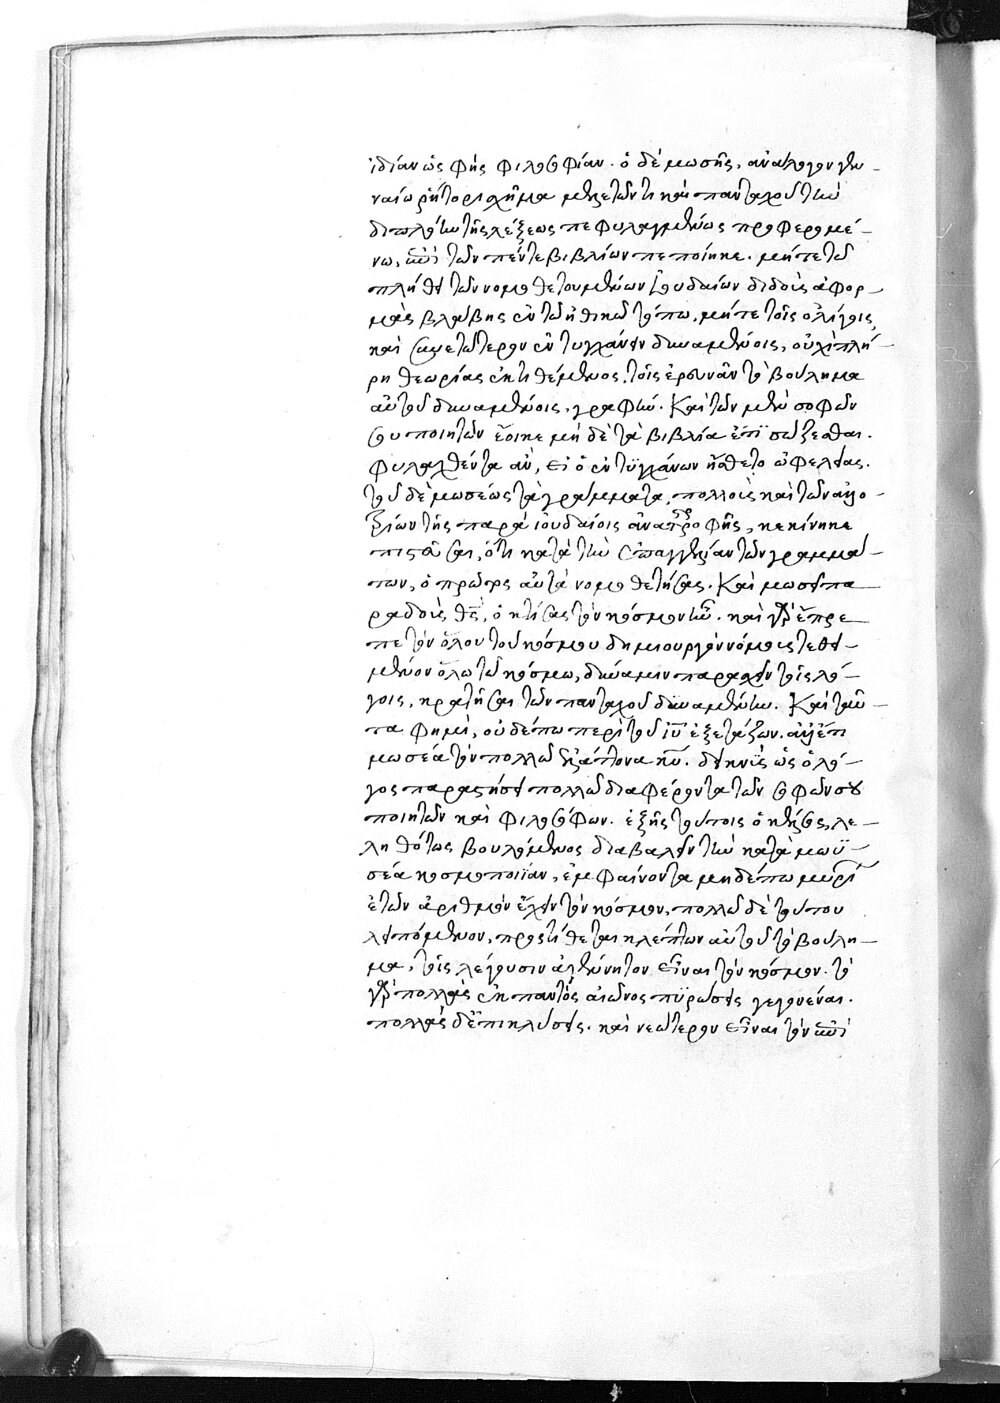 ἰδίαν ὡς φὴς φιλοσοφίαν. ὁ δὲ μωσῆς, ἀνάλογον γεν-
ναίω ῥήτορι σχῆμα μελετῶντι καὶ πανταχοῦ τὴν
διπλόην τῆς λέξεως πεφυλαγμένως προφερομέ-
νω, ἐπὶ τῶν πέντε βιβλίων πεποίηκε. μήτε τῶ
πλήθει τῶν νομοθετουμένων ἰουδαίων διδοὺς ἀφορ-
μὰς βλάβης ἐν τῶ ἠθικῶ τόπω, μήτε τοῖς ὀλίγοις
καὶ συνετώτερον ἐντυγχάνειν δυναμένοις, οὐχὶ πλή-
ρη θεωρίας ἐκτιθέμενος, τοῖς ἐρευνᾶν τὸ βούλημα
αὐτοῦ δυναμένοις, γραφήν. Καὶ τῶν μὲν σοφῶν
σου ποιητῶν ἔοικε μηδὲ τὰ βιβλία ἔτι σώζεσθαι.
φυλαχθέντα ἂν, εἰ ὁ ἐντυγχάνων ἤσθετο ὠφελείας.
τοῦ δὲ μωσέως τὰ γράμματα, πολλοὺς καὶ τῶν ἀλλο-
τρίων τῆς παρὰ ἰουδαίοις ἀναστροφῆς, κεκίνηκε
πιστεῦσαι, ὅτι κατὰ τὴν ἐπαγγελίαν τῶν γραμμά-
των, ὁ πρῶτος αὐτὰ νομοθετήσας. Καὶ μωσεῖ πα-
ραδοὺς θς, ὁ κτίσας τὸν κόσμον ἦν. καὶ γὰρ ἔπρε-
πε τὸν ὅλου τοῦ κόσμου δημιουργὸν νόμους τεθει-
μένον ὅλω τῶ κόσμω, δύναμιν παρασχεῖν τοῖς λό-
γοις, κρατῆσαι τῶν πανταχοῦ δυναμένην. Καὶ ταῦ-
τα φημὶ, οὐδέπω περὶ τοῦ ιυ ἐξετάζων. ἀλλ' ἔτι
μωσέα τὸν πολλῶ ἐλάττονα κυ. δεικνὺς ὡς ὁ λό-
γος παραστήσει πολλῶ διαφέροντα τῶν σοφῶν σου
ποιητῶν καὶ φιλοσόφων. ἑξῆς τούτοις ὁ κέλσος, λε-
ληθότως βουλόμενος διαβαλεῖν τὴν κατὰ μωϋ-
σέα κοσμοποιΐαν, ἐμφαίνοντα μηδέπω μυρί
ἐτῶν ἀριθμὸν ἔχειν τὸν κόσμον, πολλῶ δὲ τούτου
λειπόμενον, προστίθεται κλέπτων αὐτοῦ τὸ βούλη-
μα, τοῖς λέγουσιν ἀγένητον εἶναι τὸν κόσμον. τὸ
γὰρ πολλὰς ἐκ παντὸς αἰῶνος πυρώσεις γεγονέναι.
πολλὰς δ' ἐπικλύσεις. καὶ νεώτερον εἶναι τὸν ἐπὶ